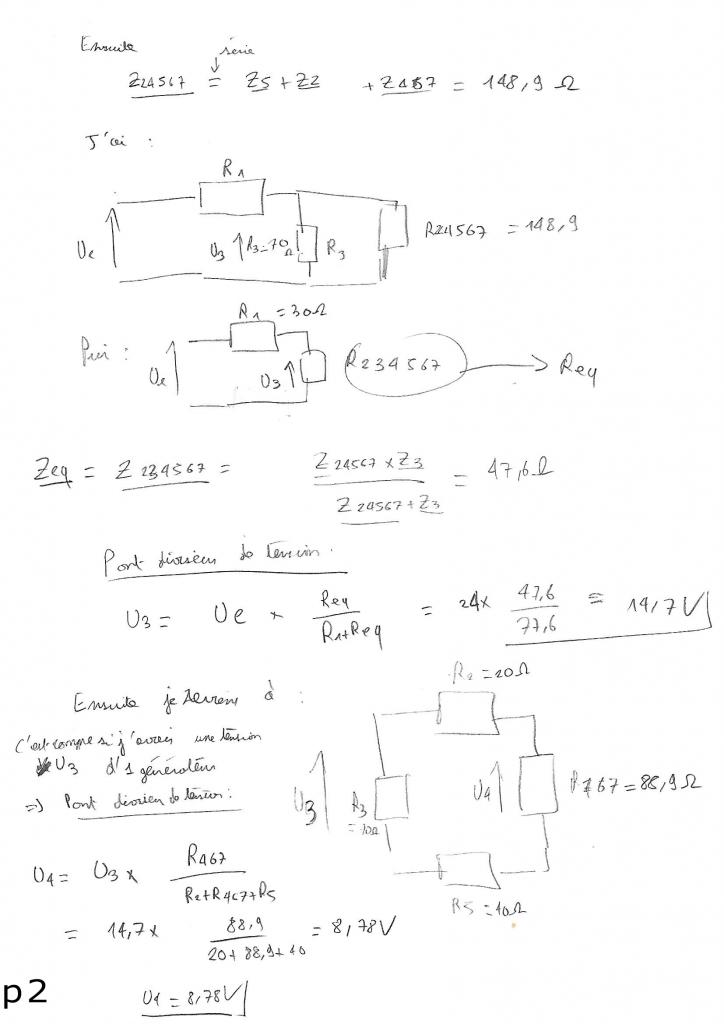 Ensuite série
Z24567 = Z5 + Z2 + Z467 = 148,9 Ω
J'ai :
R1
Ue U3 R3=70Ω R3 R24567 = 148,9
R1 = 30Ω
Puis : Ue U3 R234567 → Req
Zeq = Z234567 = Z24567 × Z3 / Z24567 + Z3 = 47,6 Ω
Pont diviseur de tension.
U3 = Ue × Req / R1+Req = 24 × 47,6 / 77,6 = 14,7 V
R2 = 20Ω
Ensuite je reviens à :
C'est comme si j'avais une tension
U3 d'1 générateur
=> Pont diviseur de tension :
U3 R3 = 70Ω U4 R467 = 88,9 Ω
R5 = 40Ω
U4 = U3 × R467 / R2+R467+R5
= 14,7 × 88,9 / 20 + 88,9 + 40 = 8,78 V
U4 = 8,78 V
p2